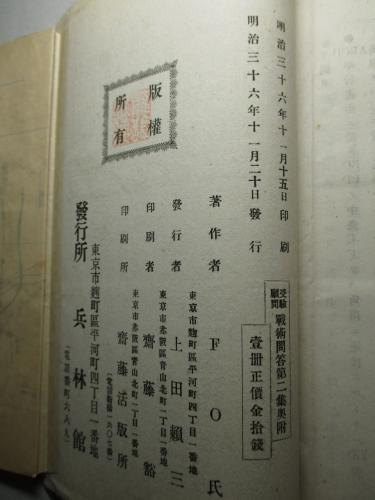 明治三十六年十一月十五日印刷
明治三十六年十一月二十日發行
受驗顧問 戰術問答第二集奥附
壹册正價金拾錢
版權所有
著作者 F O 氏
東京市麹町區平河町四丁目一番地
發行者 上田賴三
東京市赤阪區青山北町一丁目一番地
印刷者 齋藤豁
東京市赤阪區青山北町一丁目一番地
印刷所 齋藤活版所
東京市麹町區平河町四丁目一番地
發行所 兵林館